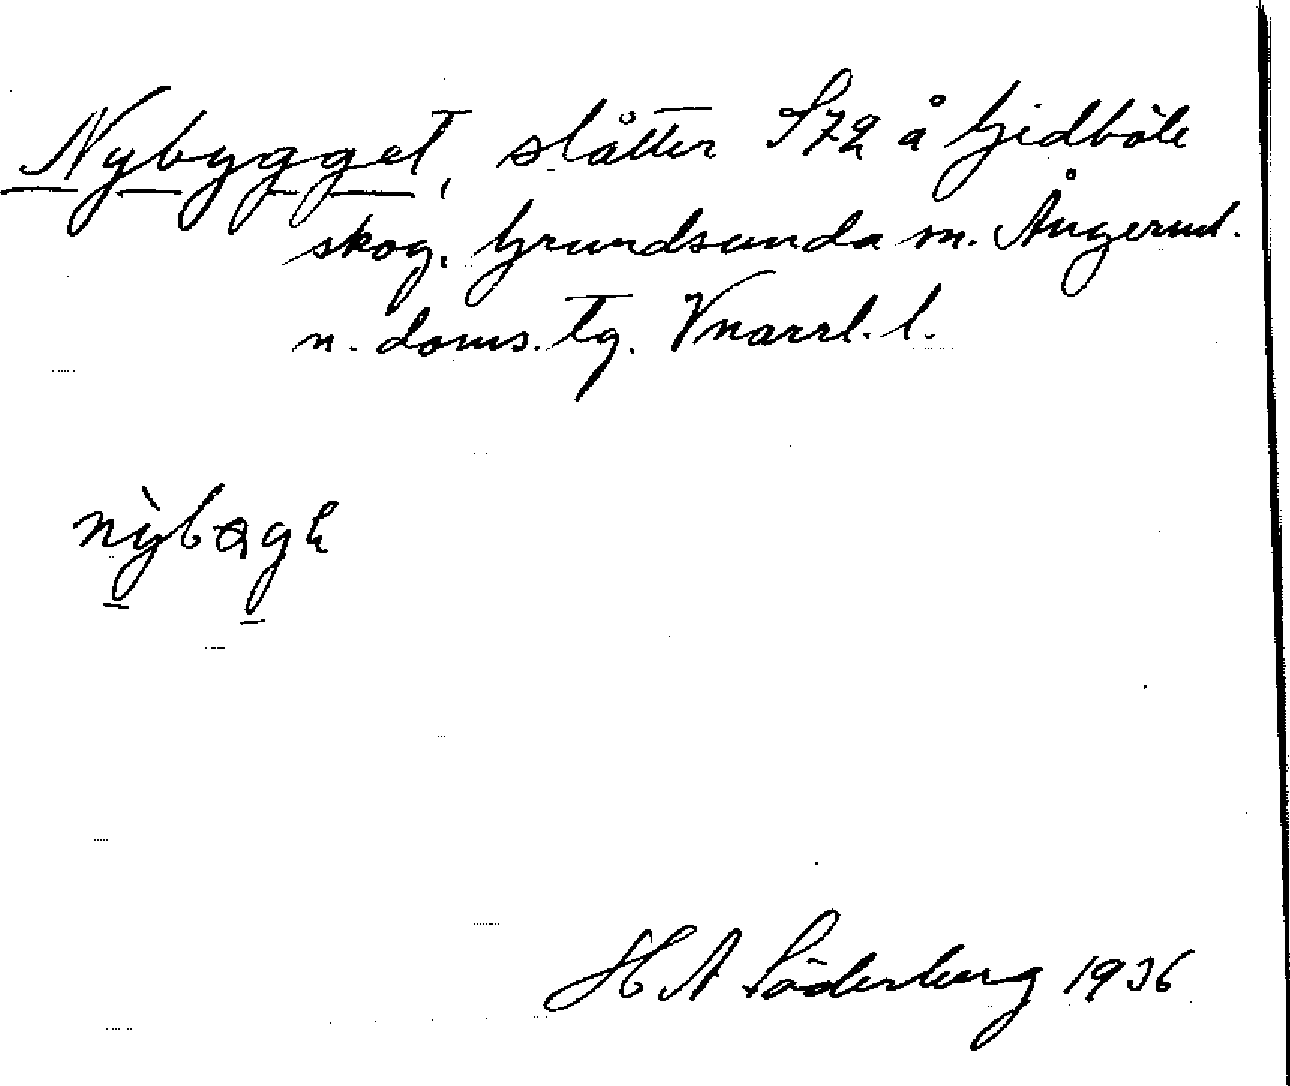 Nybygget, slåtter S72 å Gidböle
skog. Grundsunda sn. Ångerml.
n. doms. tg. Vnorrl. l.
nỳbɷgɛ
H A Söderberg 1936